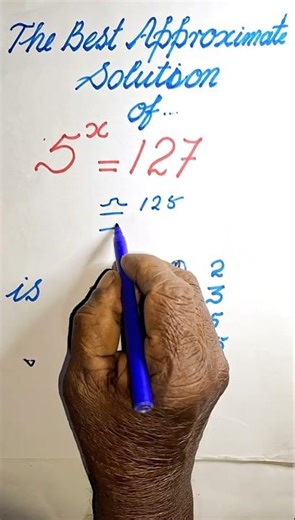 The Best Approximate
Solution
of...
5ˣ = 127
≏ 125
=
2
is 3
5